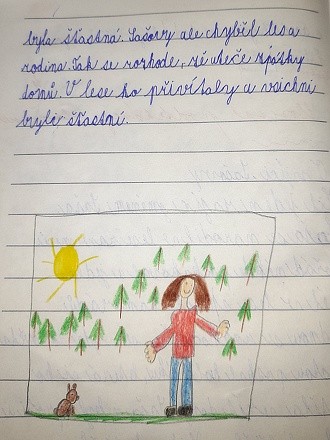 byla šťastná. Sašovy ale chyběl les a
rodina. Tak se rozhode, že uteče spátky
domů. V lese ho přivítaly a vsichni
bylé šťastní.